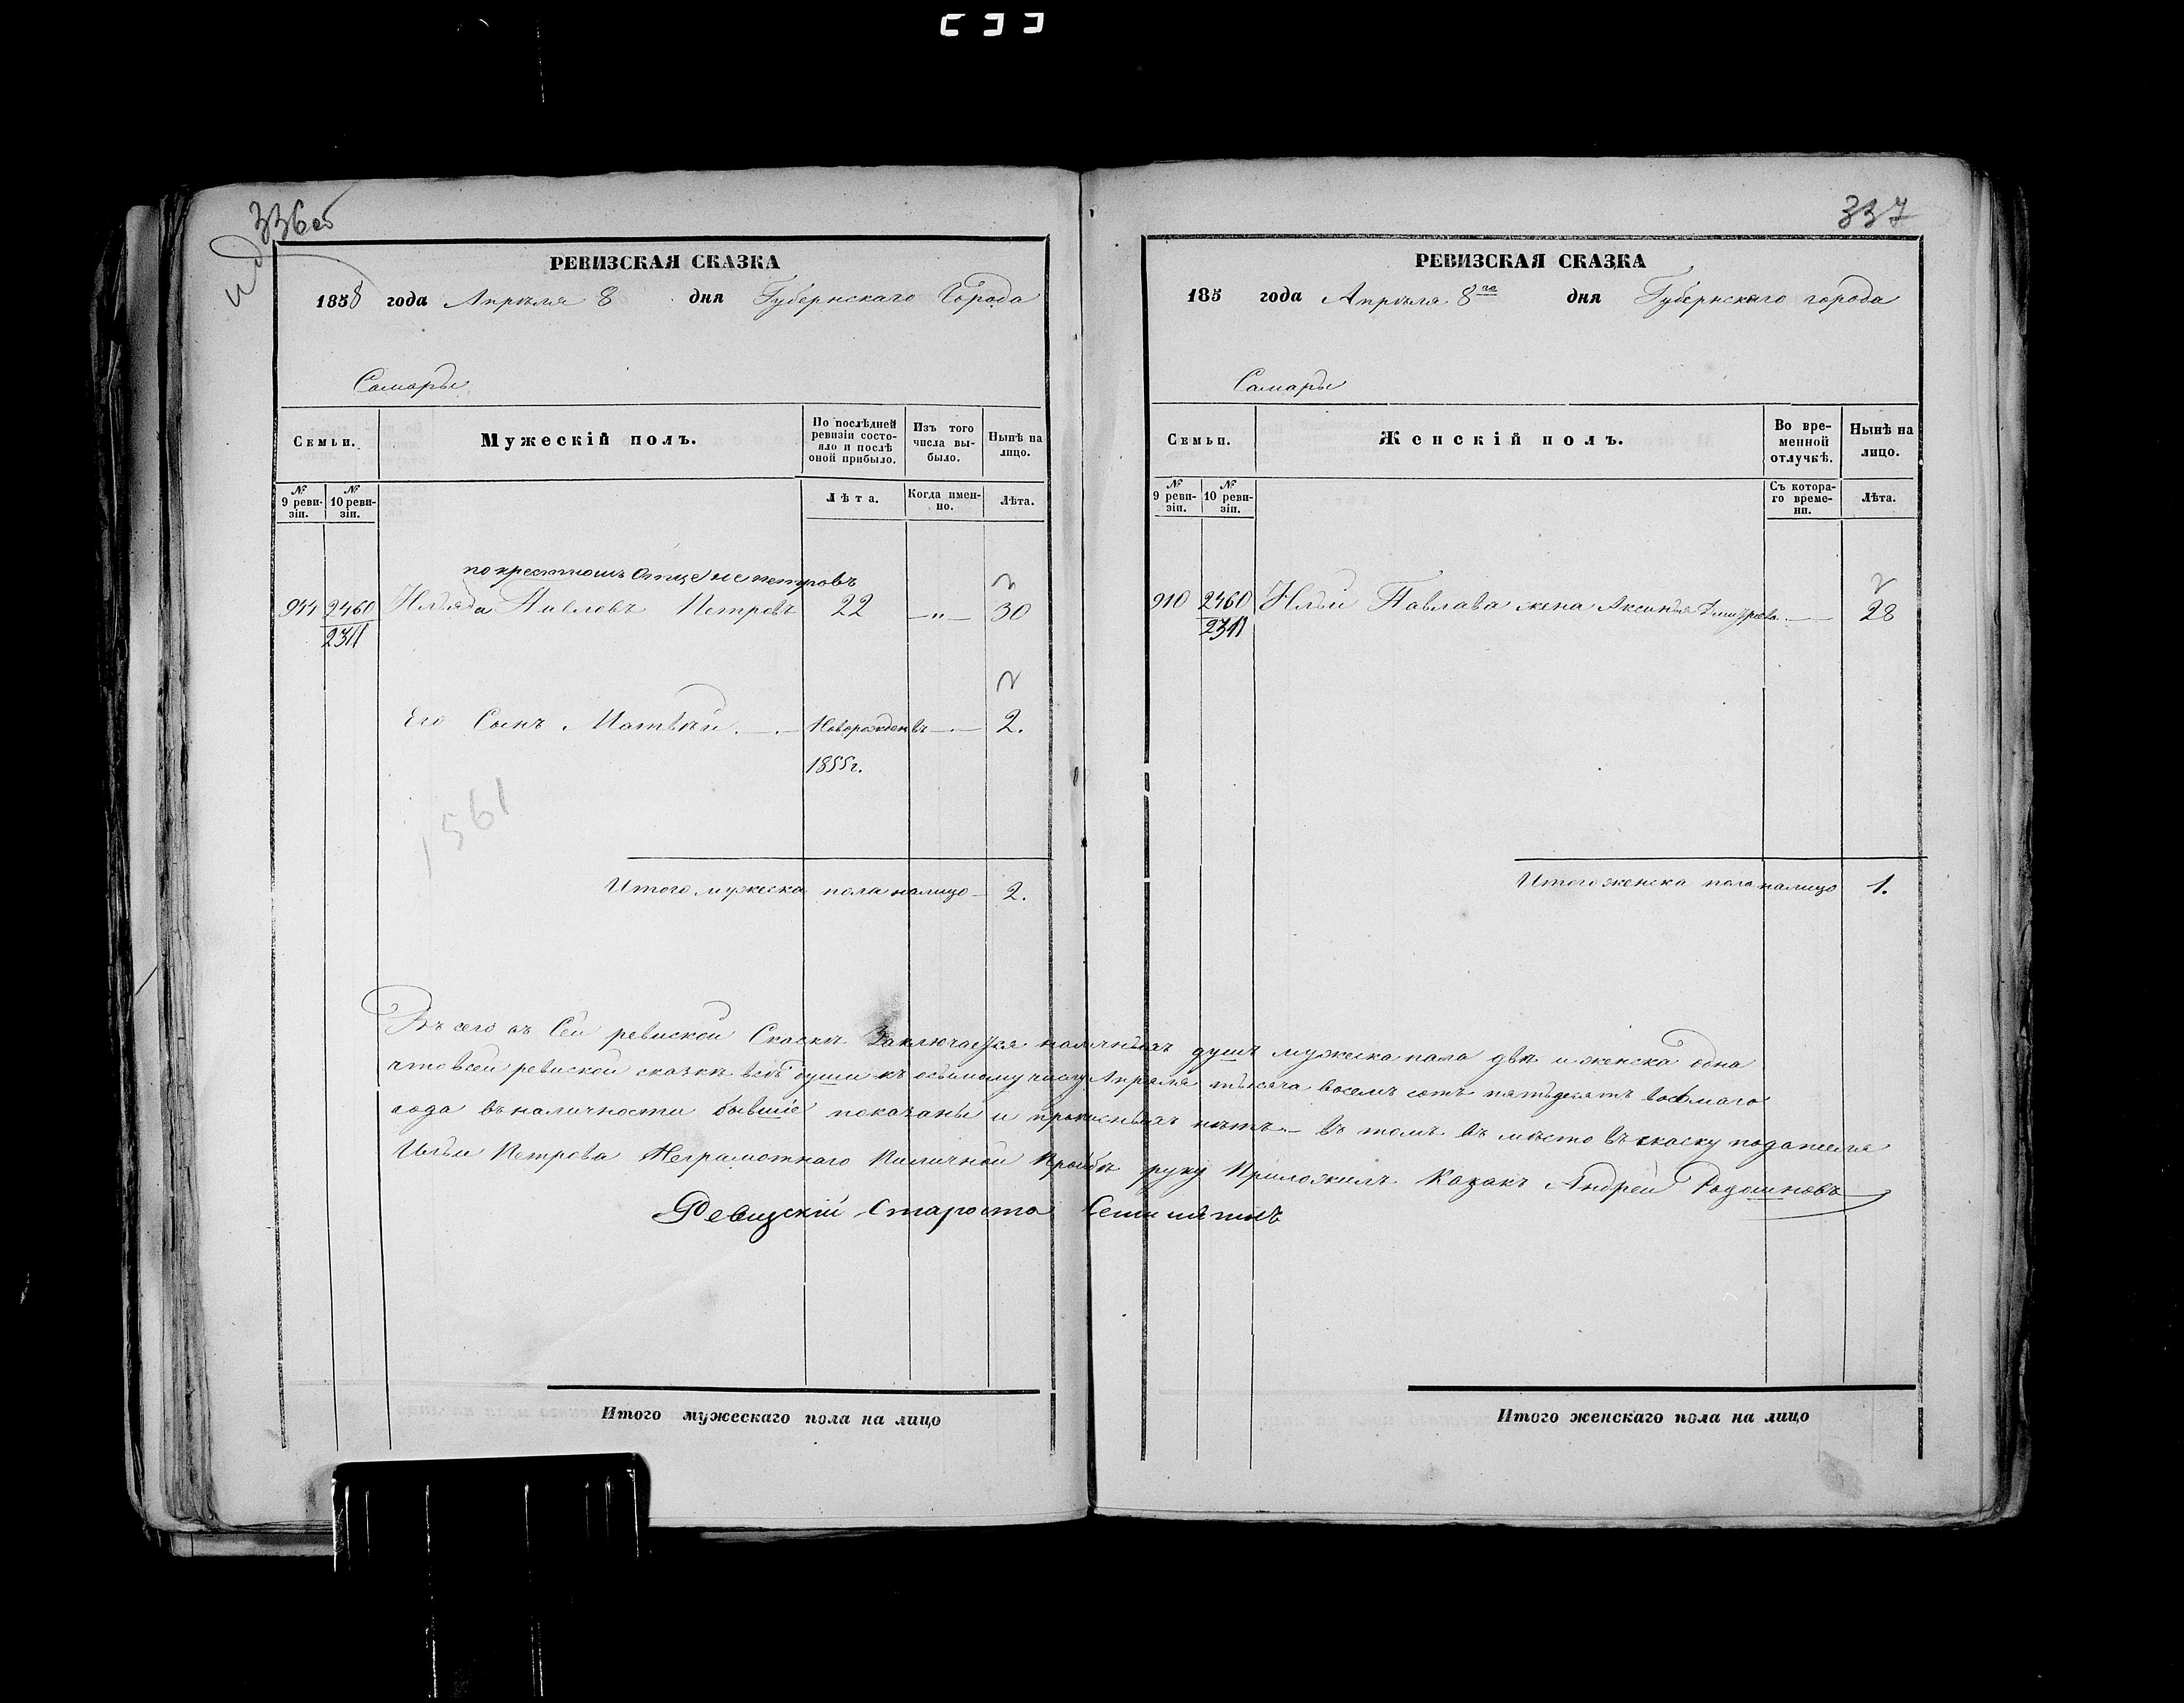 336об
РЕВИЗСКАЯ СКАЗКА
1858 года Апрѣля 8 дня Губернскаго Города
Самары
Семьи.
Мужескій полъ.
По послѣдней ревизіи состояло и послѣ оной прибыло.
Изъ того числа выбыло.
Нынѣ на лицо.
№ 9 ревизіи.
№ 10 ревизіи.
Лѣта.
Когда именно.
Лѣта.
по крестном Отце Петровъ
944 2460 Илья Павловъ Петровъ 22 — " — 30
2311
Его Сынъ Матвѣй Новорожденъ 2.
1855 г.
1561
Итого мужеска пола налицо — 2.
337
РЕВИЗСКАЯ СКАЗКА
185 года Апрѣля 8го дня Губернскаго города
Самары
Семьи.
Женскій полъ.
Во временной отлучкѣ.
Нынѣ на лицо.
№ 9 ревизіи.
№ 10 ревизіи.
Съ котораго времени.
Лѣта.
910 2460 Ильи Павлава жена Аксинья 28
2311
Итого женска пола налицо 1.
Въсего въ Сей ревиской Сказкѣ Заключается наличныхъ душъ мужеска пола двѣ и женска одна
что всей ревиской сказкѣ всѣ души къ осьмому числу Апрѣля тысяча восемъ сотъ пятьдесятъ восьмаго
года въ наличности бывшіе показаны и прописныхъ нѣтъ — въ томъ въ мѣсто въ скаску
Ильи Петрова Неграмотнаго Поличной Прозбѣ руку Приложилъ Казакъ Андрей
Ревизскій Староста
Итого мужескаго пола на лицо
Итого женскаго пола на лицо